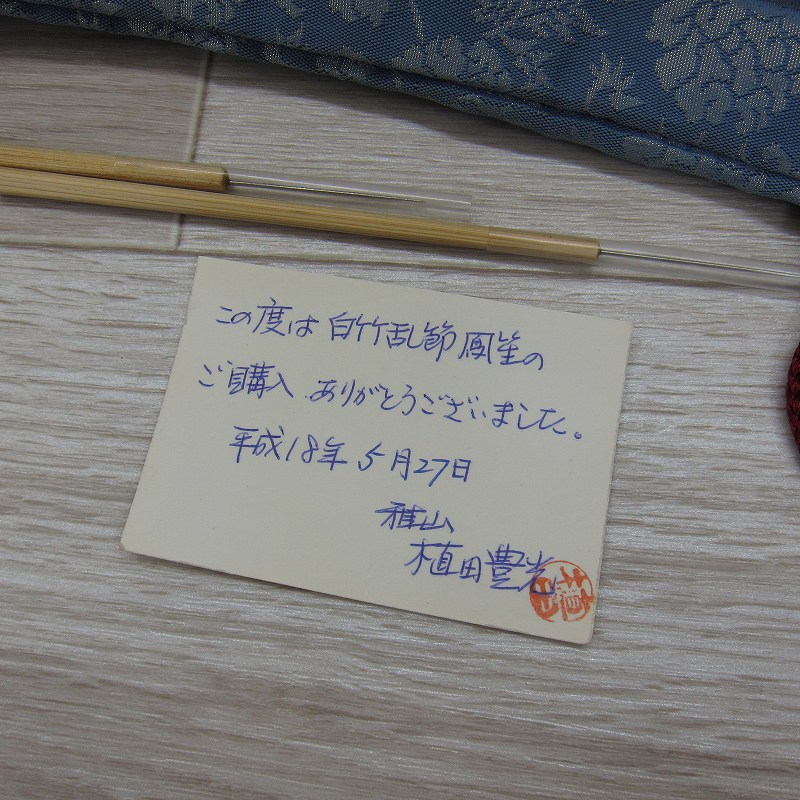 この度は白竹乱節鳳笙の
ご購入ありがとうございました。
平成18年5月27日
雅山
植田豊光
植田